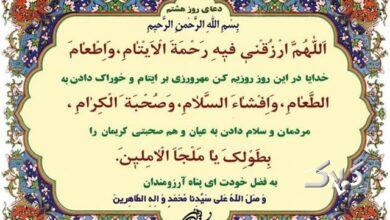 دعای روز هشتم
بِسْمِ اللهِ الرَّحْمنِ الرَّحیمِ
اَللّهُمَّ ارْزُقْنی فیهِ رَحْمَةَ الْاَیتامِ،وَاِطْعامَ
خدایا در این روز روزیم کن مهرورزی بر ایتام و خوراک دادن به
الطَّعامِ،وَاِفْشاءَ السَّلامِ،وَصُحْبَةَ الْکِرامِ،
مردمان و سلام دادن به عیان و هم صحبتی کریمان را
بِطَوْلِکَ یا مَلْجَاَ الْامِلینَ.
به فضل خودت ای پناه آرزومندان
وَ صَلَ اللهُ عَلی سَیِّدِنا مُحَمَّدٍ وَ الِهِ الطّاهِرینَ